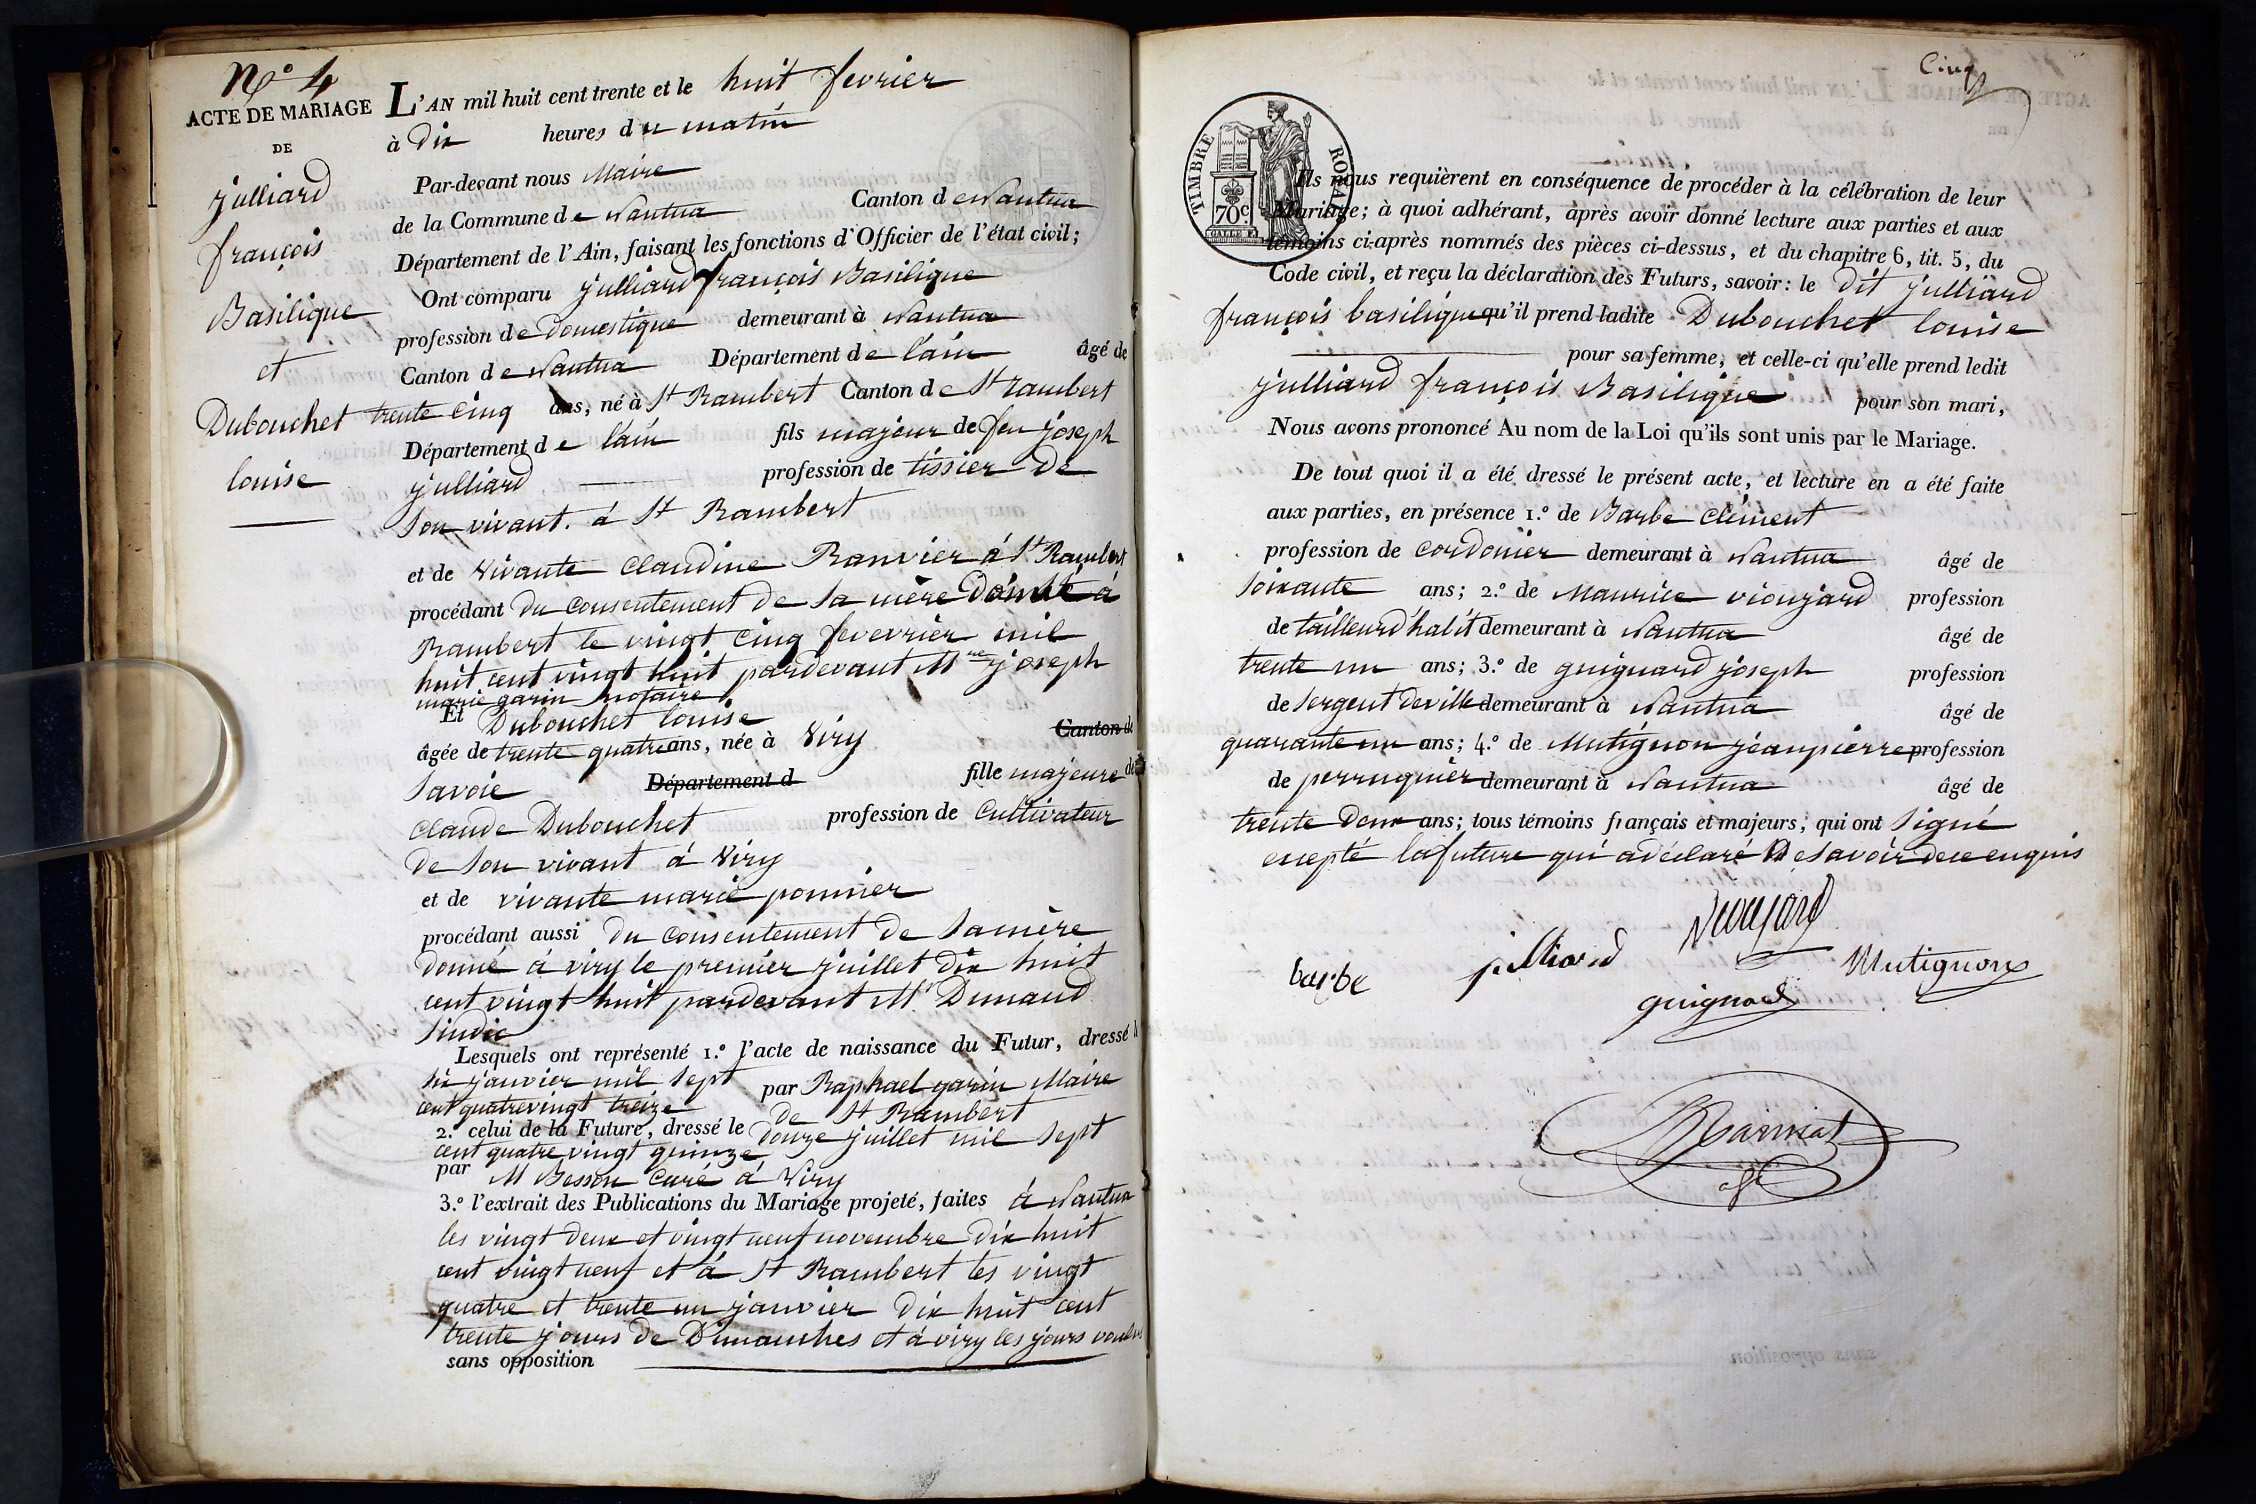 N° 4
ACTE DE MARIAGE
DE
julliard
françois
Basilique
et
Dubouchet
louise
L'AN mil huit cent trente et le huit fevrier
à Dix heures du matin
Par-devant nous Maire
de la Commune de Nantua Canton de Nantua
Département de l'Ain, faisant les fonctions d'Officier de l'état civil;
Ont comparu julliard françois Basilique
profession de Domestique demeurant à Nantua
Canton de Nantua Département de l'ain âgé de
trente cinq ans, né à St Rambert Canton de St rambert
Département de l'ain fils majeur de feu joseph
julliard profession de tissier de
son vivant. à St Rambert
et de vivante claudine Ranvier à St Rambert
procédant du consentement de sa mère Donné à
Rambert le vingt cinq fevevrier mil
huit cent vingt huit pardevant Mtre joseph
marie garin notaire
Et Dubouchet louise
âgée de trente quatre ans, née à Viry Canton de
Savoie Département d fille majeure de
claude Dubouchet profession de Cultivateur
de son vivant à Viry
et de vivante marie pommier
procédant aussi du consentement de sa mère
donné à viry le premier juillet dix huit
cent vingt huit pardevant Mr Dunand
sindic
Lesquels ont représenté 1.° l'acte de naissance du Futur, dressé l
six janvier mil sept par Raphael garin Maire
cent quatrevingt treize de St Rambert
2.° celui de la Future, dressé le douze juillet mil sept
cent quatre vingt quinze
par M Besson Curé à Viry
3.° l'extrait des Publications du Mariage projeté, faites à Nantua
les vingt deux et vingt neuf novembre dix huit
cent vingt neuf et à St Rambert les vingt
quatre et trente un janvier dix huit cent
trente jours de Dimanches et à viry les jours voulus
sans opposition
Cinq
TIMBRE ROYAL
70c
Ils nous requièrent en conséquence de procéder à la célébration de leur
Mariage; à quoi adhérant, après avoir donné lecture aux parties et aux
témoins ci-après nommés des pièces ci-dessus, et du chapitre 6, tit. 5, du
Code civil, et reçu la déclaration des Futurs, savoir: le dit julliard
françois basilique qu'il prend ladite Dubouchet louise
pour sa femme, et celle-ci qu'elle prend ledit
julliard françois Basilique pour son mari,
Nous avons prononcé Au nom de la Loi qu'ils sont unis par le Mariage.
De tout quoi il a été dressé le présent acte, et lecture en a été faite
aux parties, en présence 1.° de Barbe clément
profession de cordonier demeurant à Nantua âgé de
soixante ans; 2.° de Maurice vioujard profession
de tailleur d'habit demeurant à Nantua âgé de
trente un ans; 3.° de guignard joseph profession
de sergent de ville demeurant à Nantua âgé de
quarante un ans; 4.° de Mutignon jeanpierre profession
de perruquier demeurant à Nantua âgé de
trente deux ans; tous témoins français et majeurs, qui ont signé
excepté la future qui a déclaré ne savoir de ce enquis
Vioujard
barbe julliard Mutignon
guignard